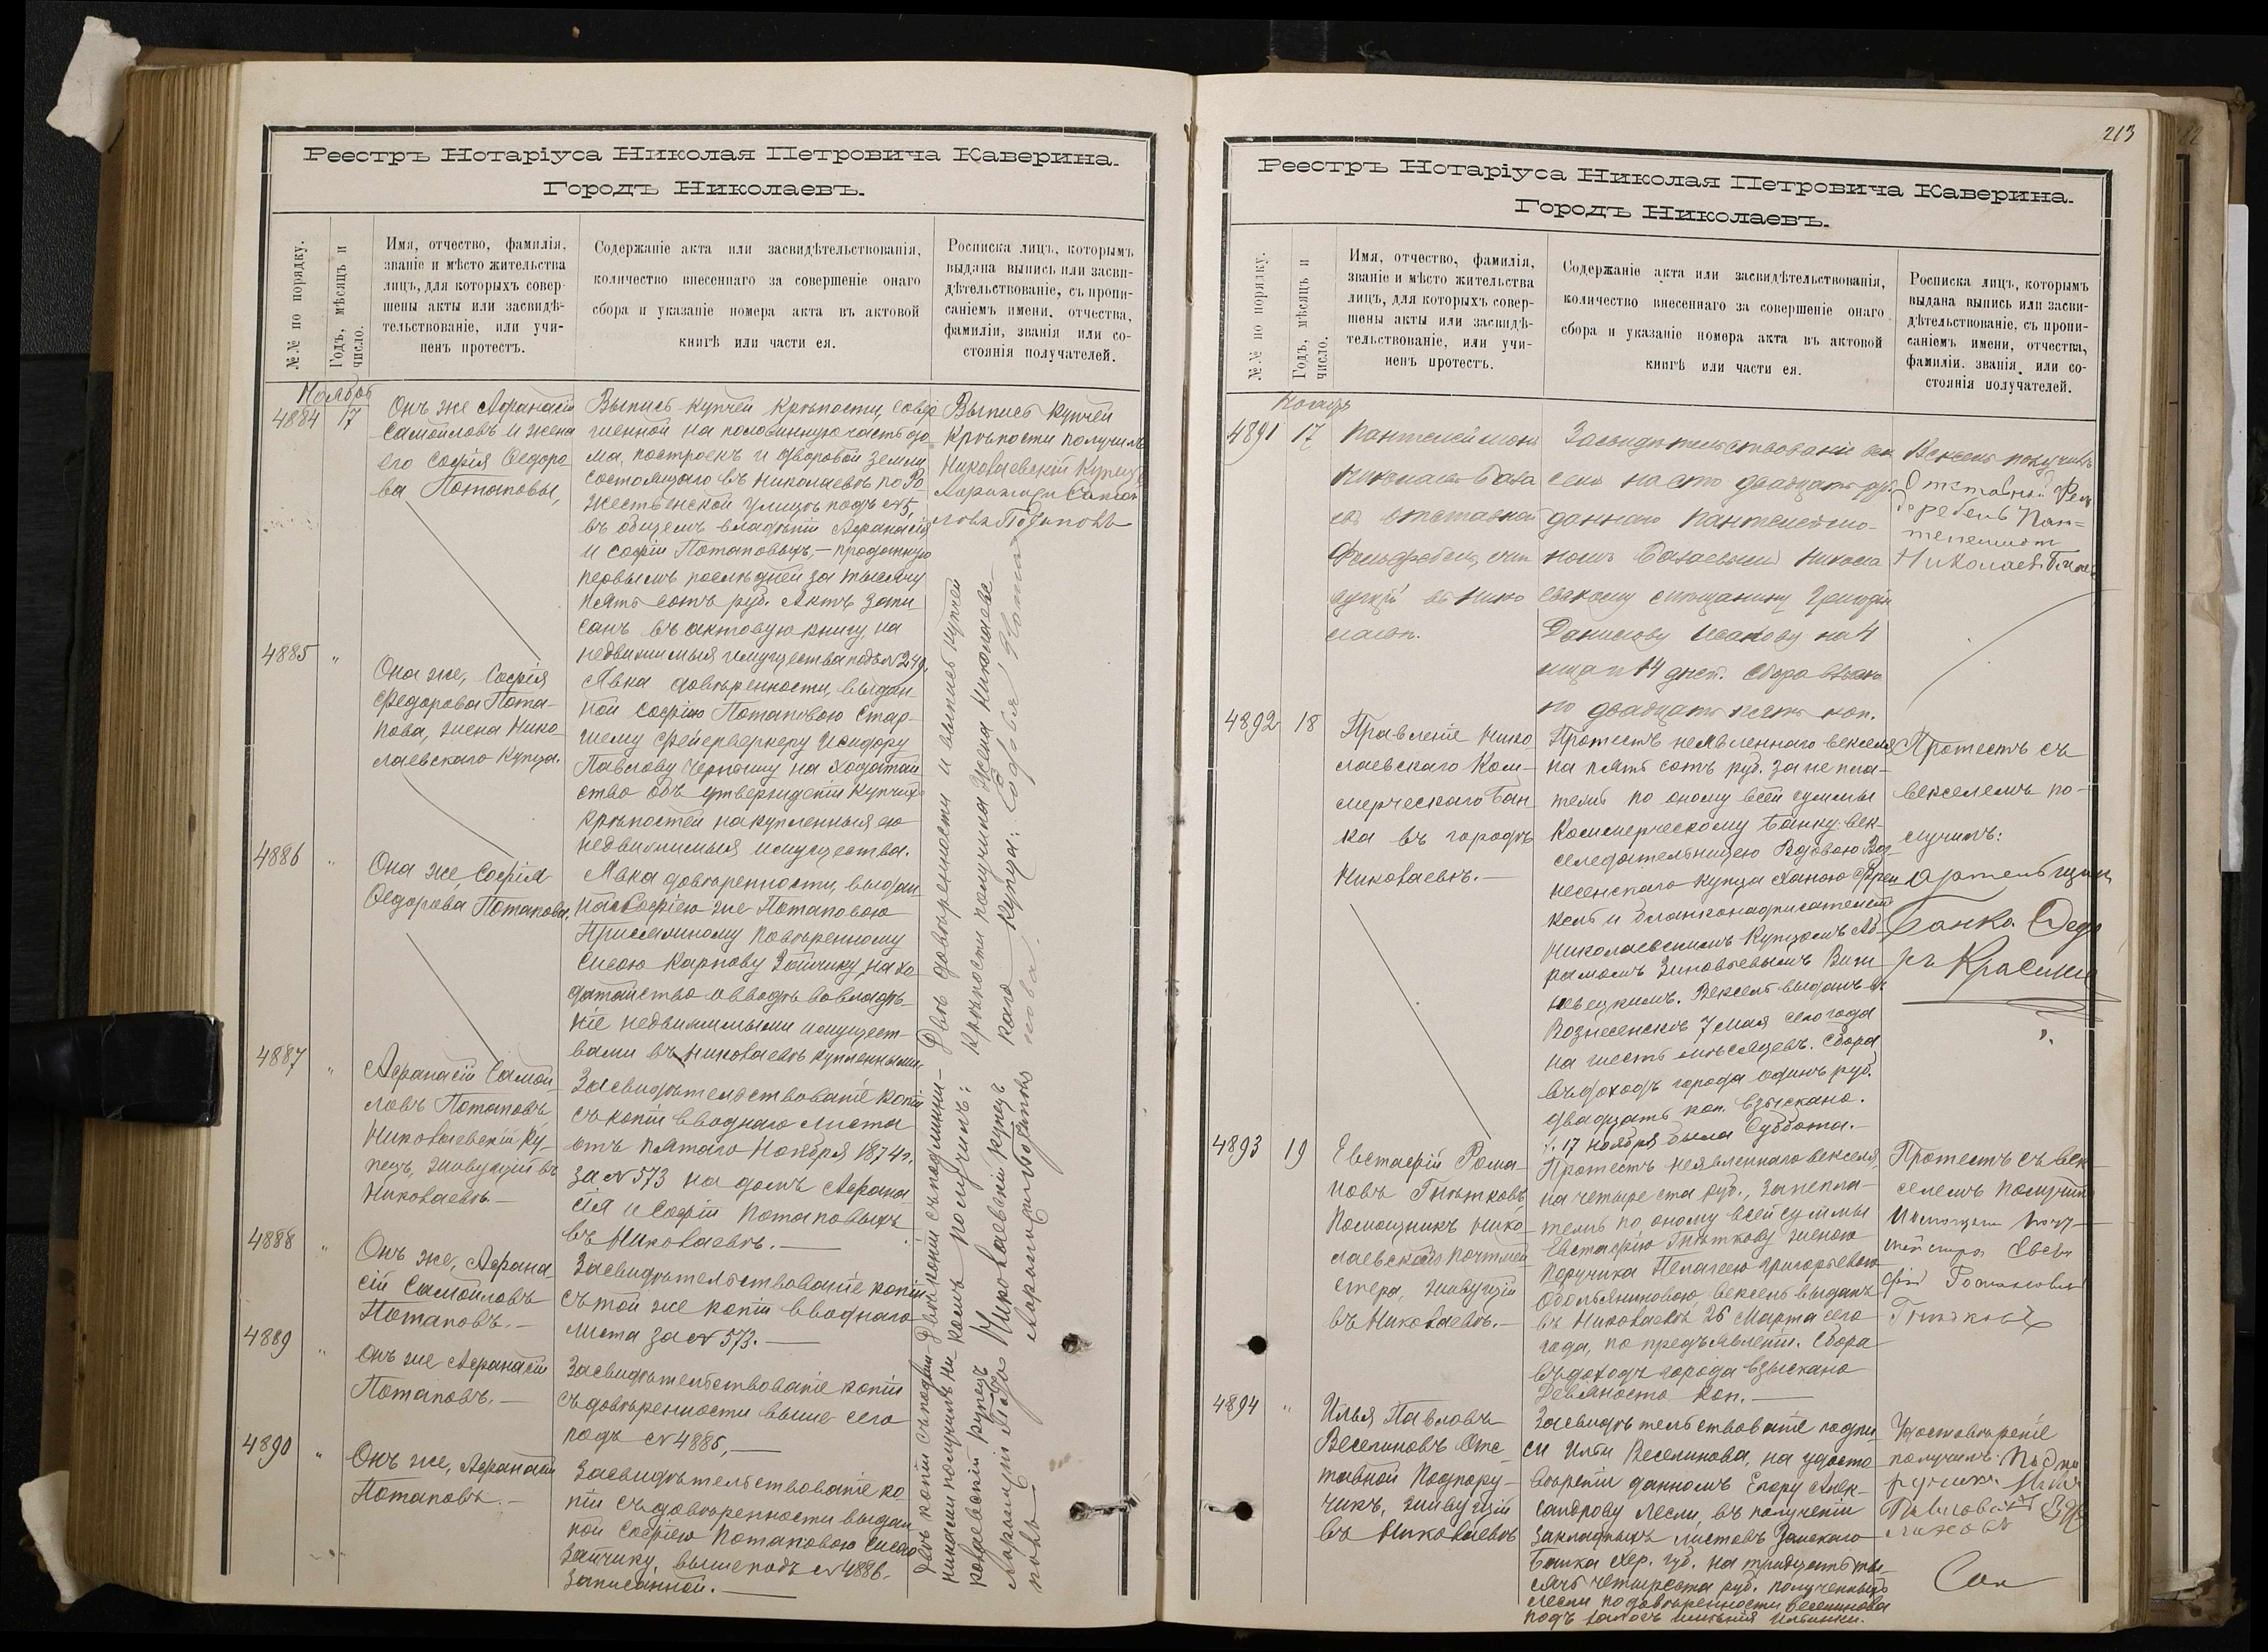 Реестръ Нотаріуса Николая Петровича Каверина.
Городъ Николаевъ.
№.№ по порядку.
Годъ, мѣсяцъ и
число.
Имя, отчество, фамилія,
званіе и мѣсто жительства
лицъ, для которыхъ совер-
шены акты или засвидѣ-
тельствованіе, или учи-
ненъ протестъ.
Содержаніе акта или засвидѣтельствованія,
количество внесеннаго за совершеніе онаго
сбора и указаніе номера акта въ актовой
книгѣ или части ея.
Росписка лицъ, которымъ
выдана выпись или засви-
дѣтельствованіе, съ пропи-
саніемъ имени, отчества,
фамиліи, званія или со-
стоянія получателей.
Ноябрь
4884 17
Онъ же Афанасій
Самойловъ и жена
его Софія Ѳедоро
ва Потаповы,
Выпись купчей крѣпости, совер
шенной на половинную часть до
ма, построекъ и дворовой земли,
состоящаго въ Николаевѣ по Ро
жественской улицѣ подъ №5,
въ общемъ владѣніи Афанасія
и Софіи Потаповыхъ, – проданную
первымъ послѣдней за тысячу
пять сотъ руб. Актъ запи
санъ въ актовую книгу на
недвижимыя имущества подъ №249.
Выпись купчей
крѣпости получилъ
Николаевскій Купецъ
4885 "
Она же, Софія
Федорова Пота-
пова, жена Нико
лаевскаго купца.
Явка довѣренности, выдан
ной Софіею Потаповою Стар-
шему фейерверкеру Исидору
Павлову Чернышу на ходатай
ство объ утвержденіи купчихъ
крѣпостей на купленныя ею
недвижимыя имущества.
4886 "
Она же Софія
Ѳедорова Потапова,
Явка довѣренности, выдан
ной Софіею же Потаповою
Присяжному повѣренному
Сысою Карпову Зайчику, на хо
датайство о вводѣ во владѣ-
ніе недвижимыми имущест-
вами въ Николаевѣ купленными.
4887 "
Афанасій Самой-
ловъ Потаповъ
Николаевскій ку-
пецъ, живущій въ
Николаевѣ. –
Засвидѣтельствованіе копіи
съ копіи вводнаго листа
отъ пятаго Ноября 1874 г.
за №573 на домъ Афана
сія и Софіи Потаповыхъ
въ Николаевѣ. –
4888 "
Онъ же, Афана-
сій Самойловъ
Потаповъ. –
Засвидѣтельствованіе копіи
съ той же копіи вводнаго
листа за №573. –
4889 "
Онъ же Афанасій
Потаповъ. –
Засвидѣтельствованіе копіи
съ довѣренности выше сего
подъ №4885, –
4890 "
Онъ же, Афанасій
Потаповъ. –
Засвидѣтельствованіе ко
піи съ довѣренности выдан
ной Софіею Потаповою Сысою
Зайчику, выше подъ №4886.
записанной. –
Двѣ довѣренности и выпись купчей
крѣпости получила Жена Николаевс-
каго купца: Софія
Двѣ копіи съ подлинни-
комъ получилъ:
Николаевскій купецъ
Двѣ копіи съ подлин-
никами получилъ Ни-
колаевскій купецъ
213
Реестръ Нотаріуса Николая Петровича Каверина.
Городъ Николаевъ.
№.№ по порядку.
Годъ, мѣсяцъ и
число.
Имя, отчество, фамилія,
званіе и мѣсто жительства
лицъ, для которыхъ совер-
шены акты или засвидѣ-
тельствованіе, или учи-
ненъ протестъ.
Содержаніе акта или засвидѣтельствованія,
количество внесеннаго за совершеніе онаго
сбора и указаніе номера акта въ актовой
книгѣ или части ея.
Росписка лицъ, которымъ
выдана выпись или засви-
дѣтельствованіе, съ пропи-
саніемъ имени, отчества,
фамиліи, званія или со-
стоянія получателей.
Ноябрь
4891 17
Пантелеймонъ
Николаевъ
отставной
Фельдфебель, жи
вущій въ Нико
лаевѣ.
Засвидѣтельствованіе век
селя на сто двадцать руб.
даннаго Пантелеймо-
номъ Никола
евскому мѣщанину Григорію
Данилову на 4
мѣсяца 14 дней. Сбора взыска
но двадцать пять коп.
Вексель получилъ
Отставной Фель
дфебель Пан-
телеймон
Николаевъ
4892 18
Правленіе Нико
лаевскаго Ком-
мерческаго Бан
ка въ городѣ
Николаевѣ. –
Протестъ неявленнаго векселя
на пять сотъ руб. за не пла-
тежъ по оному всей суммы
Коммерческому Банку век-
селедательницею Вдовою Воз-
несенскаго купца Ханою Френ
кель и бланконадписателемъ
Николаевскимъ Купцомъ Аб-
рамомъ Зиновьевымъ
Вексель выданъ въ
Вознесенскѣ 7 мая сего года
на шесть мѣсяцевъ. Сбора
въ доходъ города одинъ руб.
двадцать коп. взыскано.
17 Ноября была Суббота. –
Протестъ съ
векселемъ по-
лучилъ:
Артельщик
Банка Федо
ръ
4893 19
Евстафій Рома-
новъ Гнѣтковъ
Помощникъ Нико
лаевскаго Почтмей
стера, живущій
въ Николаевѣ. –
Протестъ неявленнаго векселя,
на четыреста руб., за непла-
тежъ по оному всей суммы
Евстафію Гнѣткову женою
поручика Пелагеею Григорьевою
Обольяниновою, вексель выданъ
въ Николаевѣ 26 Марта сего
года, по предъявленіи. Сбора
въ доходъ города взыскано
девяносто коп. –
Протестъ съ век-
селемъ получилъ
Помощник Почт-
мейстера Евста
фій Романовъ
4894 "
Илья Павловъ
Веселиновъ Отс
тавной Подпору-
чикъ, живущій
въ Николаевѣ
Засвидѣтельствованіе подпи
си Ильи Веселинова, на удосто
вѣреніи данномъ Егору Алек-
сандрову Лесли, въ полученіи
закладныхъ листовъ Земскаго
Банка Хер. губ. на тридцать ты-
сячъ четыреста руб. полученныхъ
Лесли по довѣренности Веселинова
подъ залогъ имѣнія Ильинки.
Удостовѣреніе
получилъ Подпо
ручикъ Илья
Павловъ